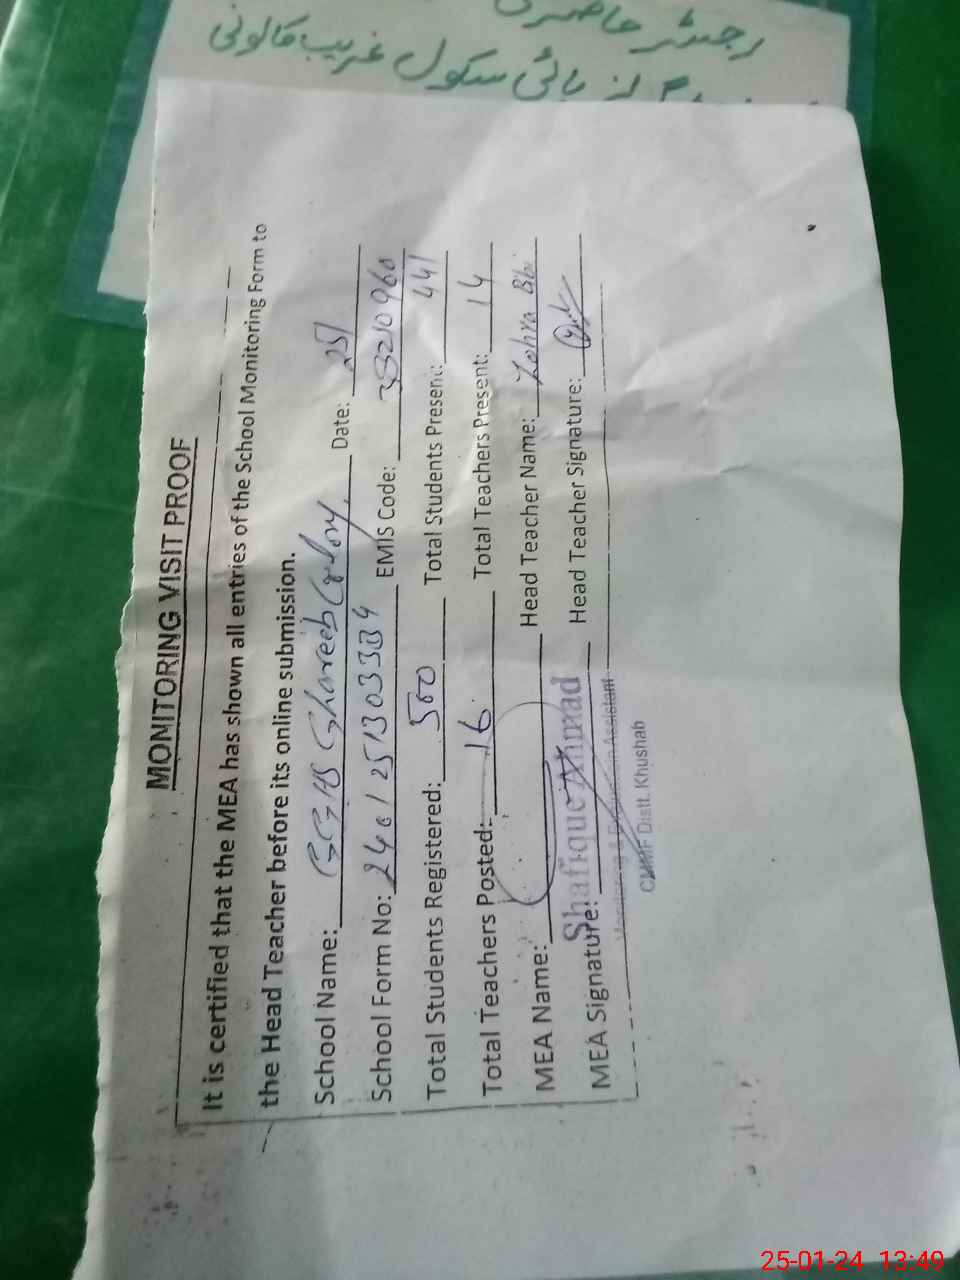 رجسٹر حاضری
ہائی سکول غریب کالونی
MONITORING VISIT PROOF
It is certified that the MEA has shown all entries of the School Monitoring Form to
the Head Teacher before its online submission.
School Name: GGHS Ghareeb Colony Date: 25/
School Form No: EMIS Code: 38210960
Total Students Registered: 500 Total Students Present: 441
Total Teachers Posted: 16 Total Teachers Present: 14
MEA Name: Head Teacher Name: Zohra Bibi
MEA Signature: Shafique Ahmad Head Teacher Signature:
Monitoring & Assistant
CMMF Distt. Khushab
25-01-24 13:49